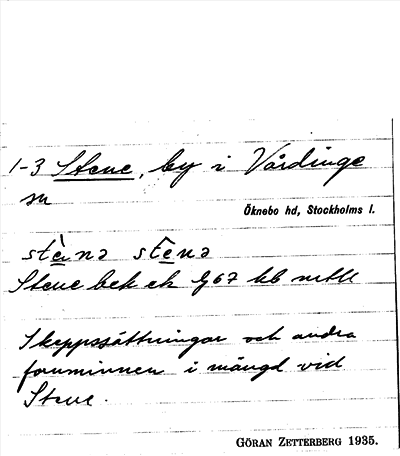 1-3 Stene, by i Vårdinge
sn
Öknebo hd, Stockholms l.
stὲnə stênə
Stene bek ek G67 hb mttl
Skeppssättningar och andra
fornminnen i mängd vid
Stene.
GÖRAN ZETTERBERG 1935.